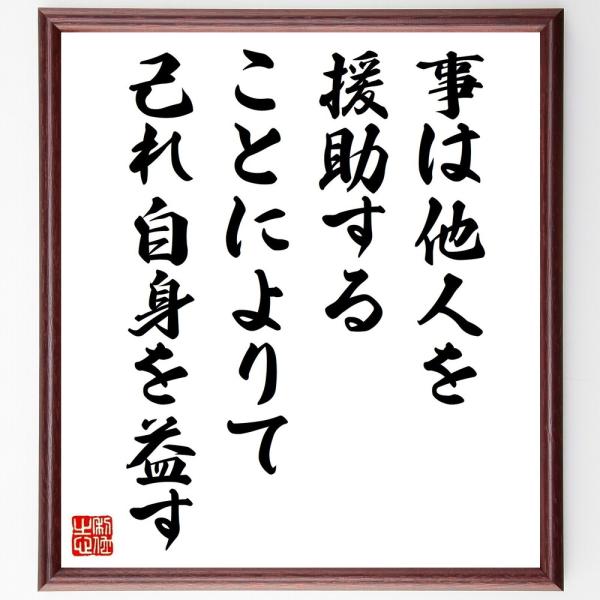 事は他人を
援助する
ことによりて
己れ自身を益す